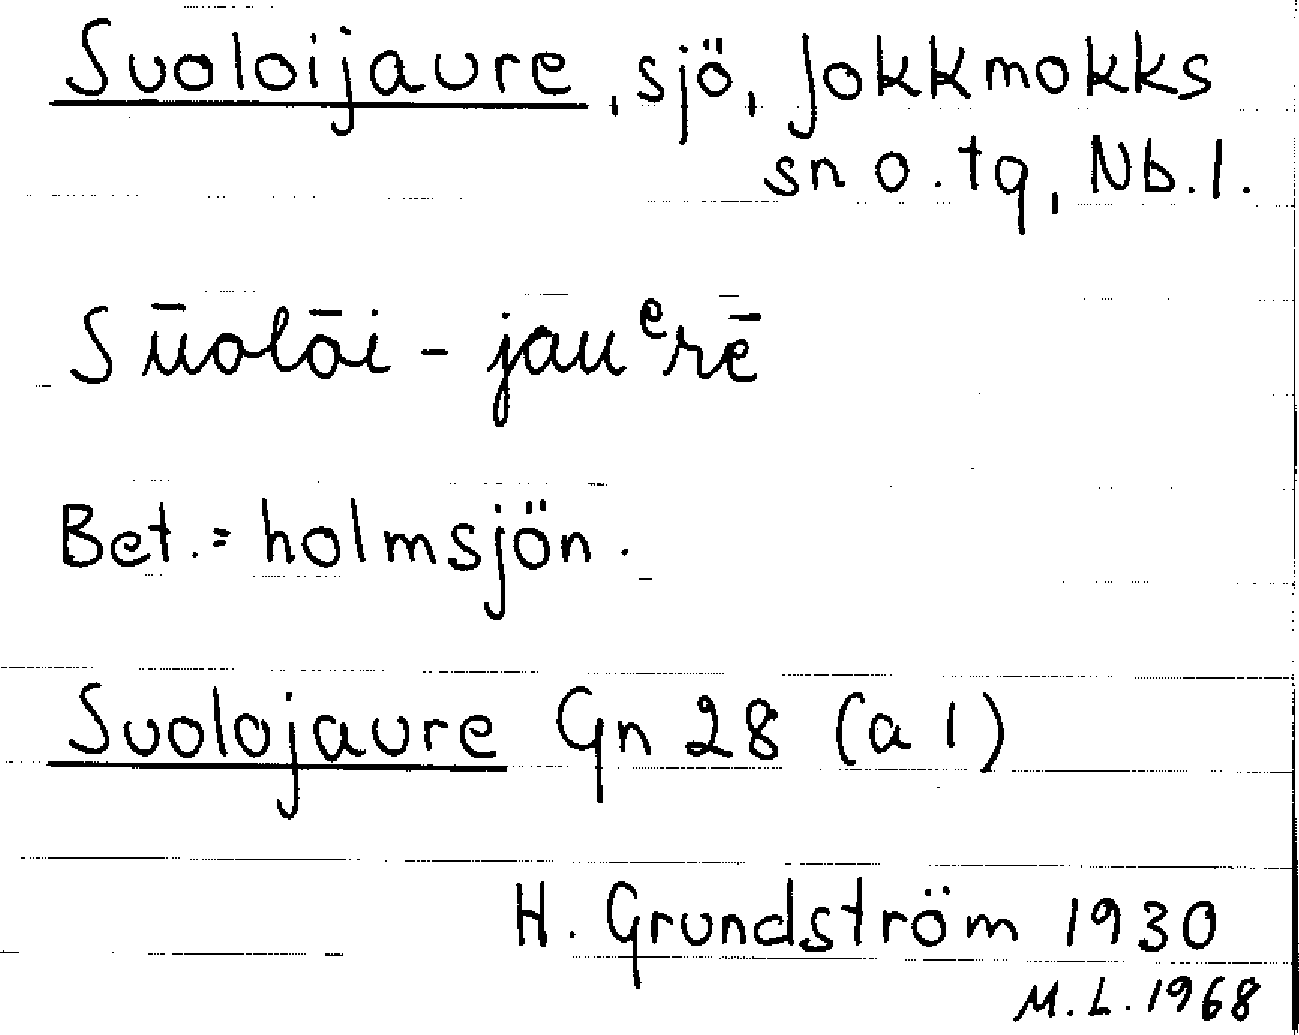 Suoloijaure, sjö, Jokkmokks
sn o. tq, Nb. l.
Sūolōi - jāuᵉrē
Bet. = holmsjön.
Suolojaure Gn 28 (a 1)
H. Grundström 1930
M. L. 1968